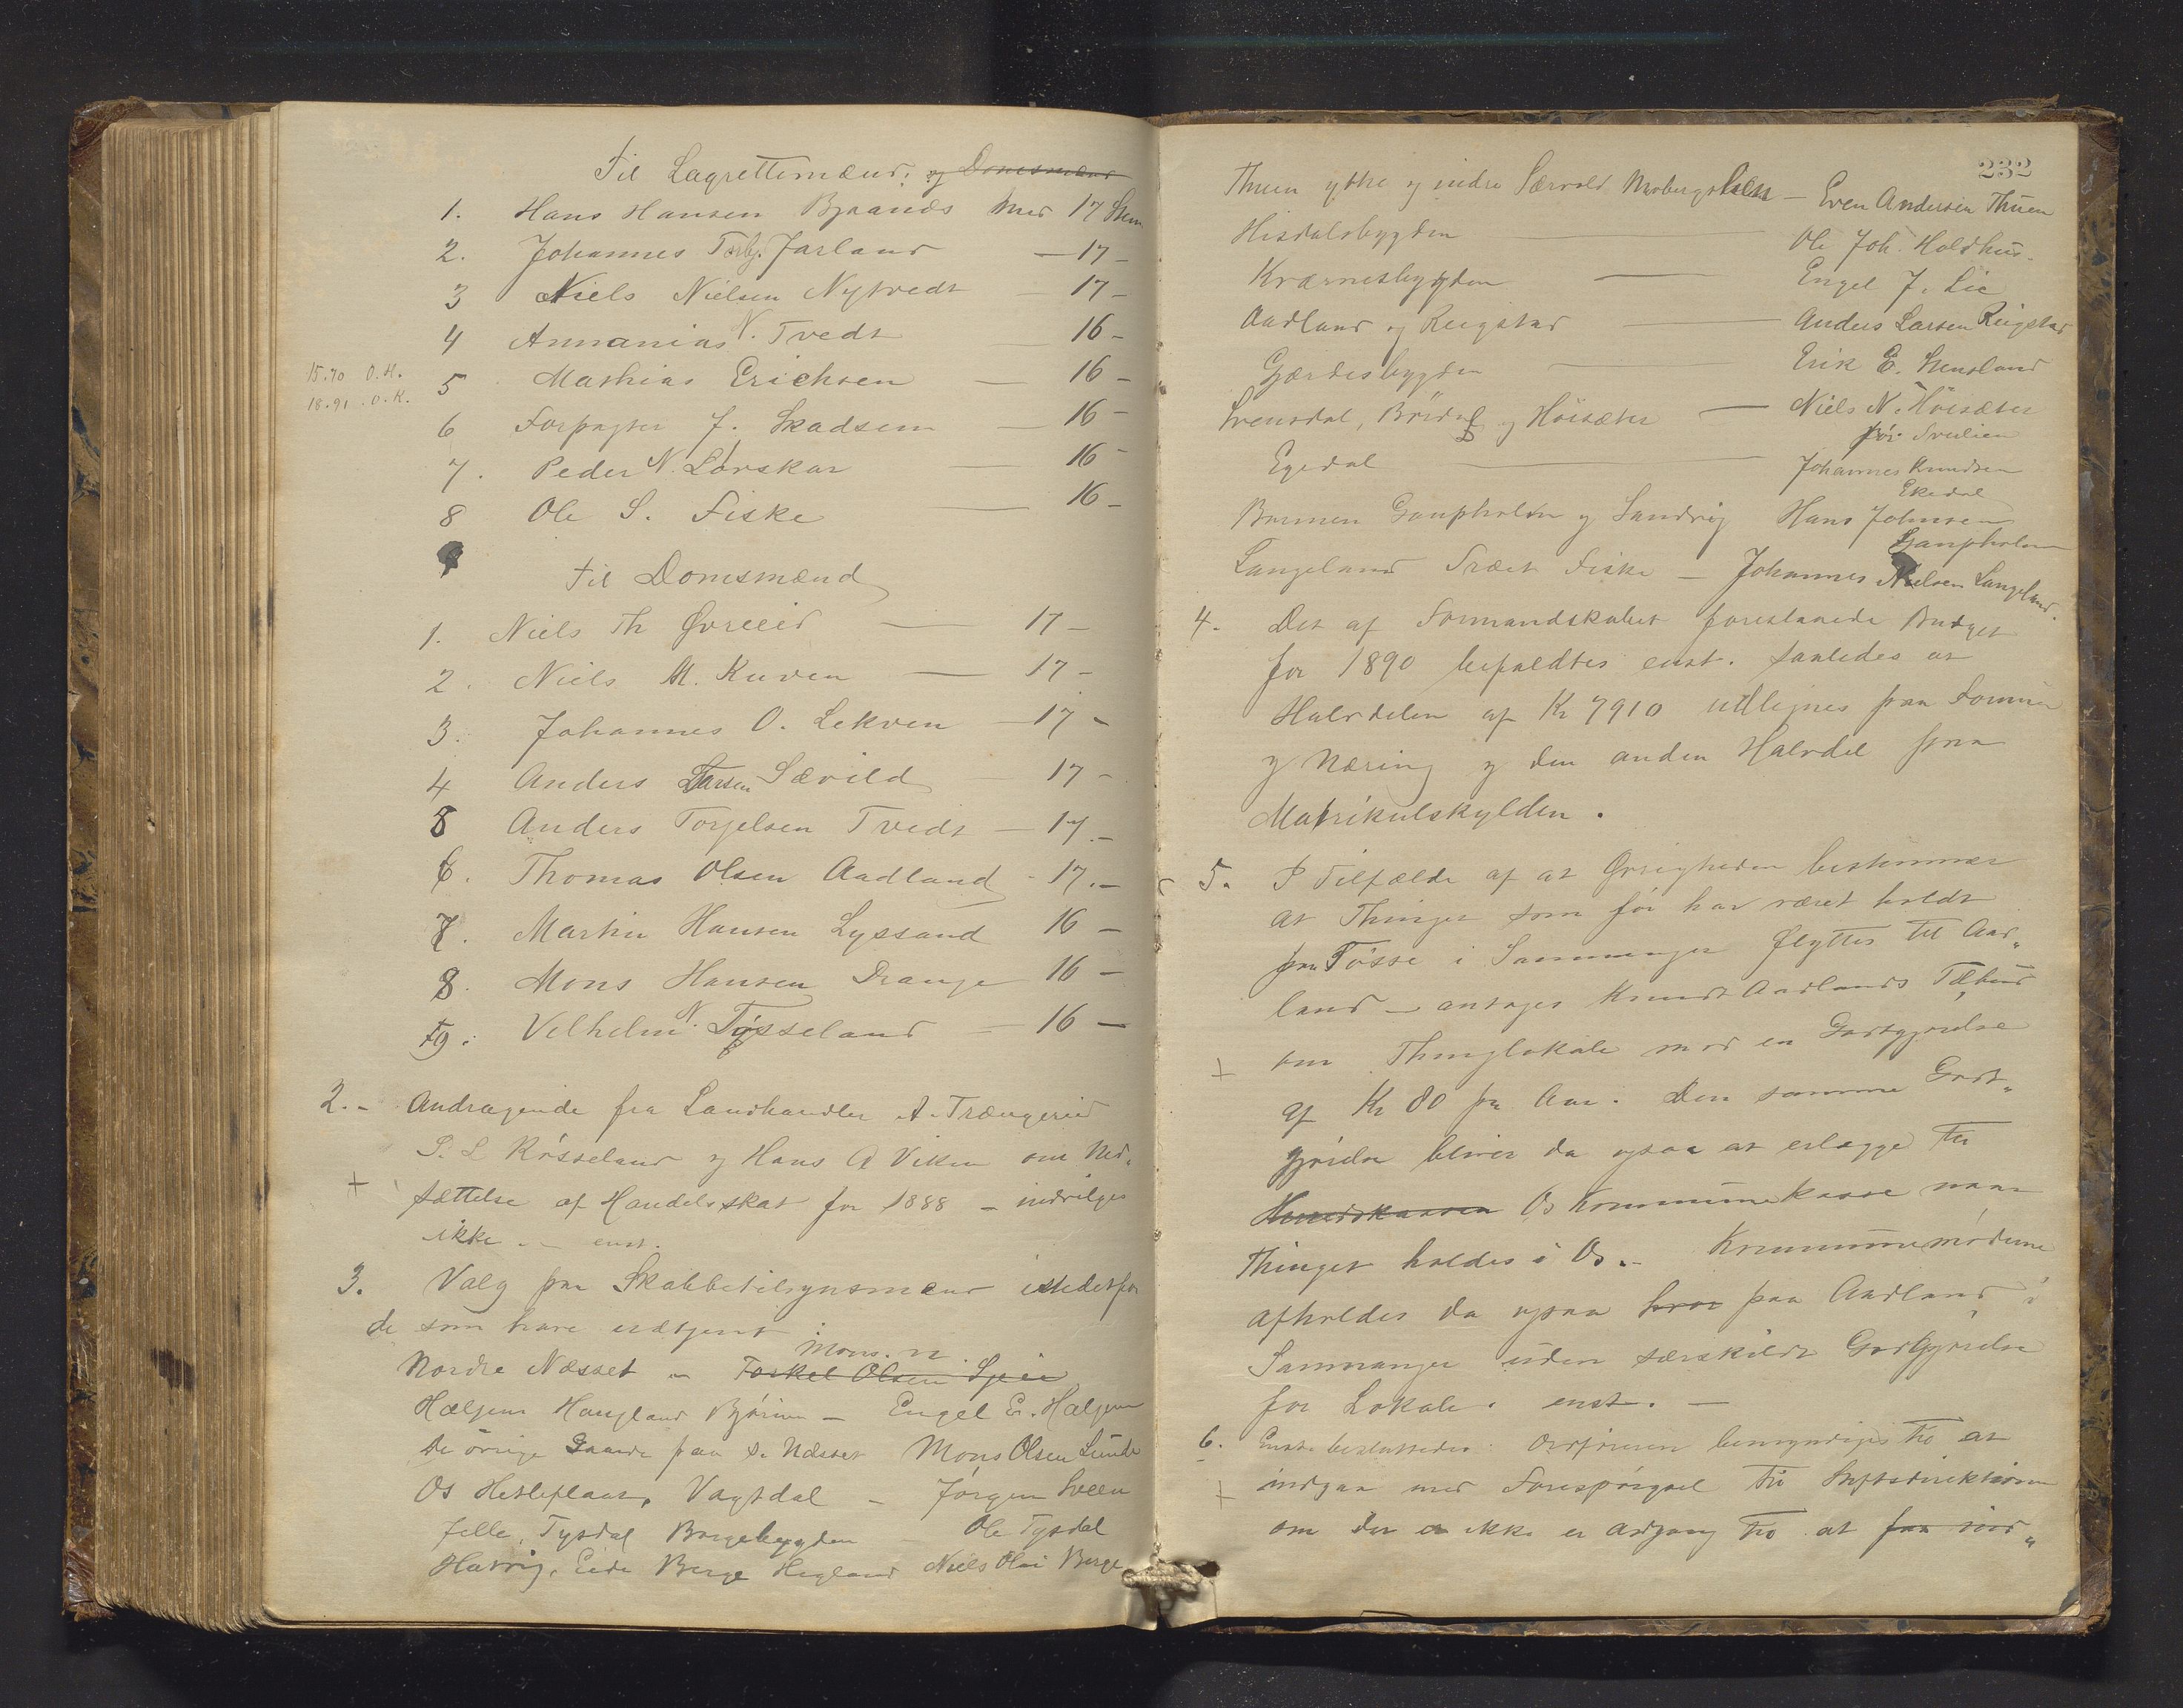 Til Lagrettemænd: og Domsmænd
1. Hans Hansen Bjaanæs med 17 Stem
2. Johannes Torbj. Jarland — 17 —
3 Niels Nielsen Nytvedt — 17 —
4 Annanias N. Tvedt — 16 —
15.70 O.H.
18.91. O.K.
5 Mathias Erichsen — 16 —
6 Forpagter J. Skadsem — 16 —
7. Peder N. Lørskar — 16 —
8 Ole S. Fiske — 16 —
Til Domsmænd
1. Niels Th Øvreeid — 17 —
2. Niels M. Kuven — 17 —
3. Johannes O. Lekven — 17 —
4 Anders Larsen Sævild — 17 —
5 Anders Torjelsen Tvedt — 17 —
6. Thomas Olsen Aadland — 17. —
7. Martin Hansen Lyssand 16 —
8. Mons Hansen Drange 16 —
9. Velhelm N. Tøsseland — 16 —
2. - Andragende fra Landhandler A. Trængereid
S. L Røsseland og Hans A Viken om Ned-
+ sættelse af Handelsskat for 1888 — indvilges
ikke. — enst.
3. Valg paa Skabbetilsynsmænd istedetfor
de som have udtjent
Mons. N
Nordre Næsset — Torkel Olsen Lyeie
Hæljem Haugland Bjørnen — Engel E. Hæljem
De øvrige Gaarde paa S. Næsset Mons Olsen Lunde
Os Hetleflaat, Vagtdal — Jørgen Sveen
Jelle, Tysdal Borgebygden — Ole Tysdal
Hatvig, Eide Berge Hegland Niels Olai Berge
232
Thuen ytre og indre Særvold Mobergslien — Even Andersen Thuen
Hisdalsbygden — Ole Joh. Holdhus.
Kværnesbygden — Engel J. Lie
Aadland og Reigstad — Anders Larsen Reigstad
Gjærdesbygden — Erik E. Stensland
Svensdal, Børdal og Høisæter — Niels N. Høisæter
Egedal — Johannes Knudsen
Ekedal
Bremen Gaupholm og Sandvig Hans Johnsen
Gaupholm
Langeland Træet Fiske — Johannes Nielsen Langeland.
4. Det af Formandskabet foreslaaede Budget
for 1890 bifaldtes enst. saaledes at
Halvdelen af Kr 7910 udlignes paa Formue
og Næring og den anden Halvdel paa
Matrikulskylden.
5. I Tilfælde af at Øvrigheden bestemmer
at Thinget som før har været holdt
paa Tøsse i Samnanger flyttes til Aad-
land — antages Knudt Aadlands Tilbud
+ om Thinglokale mod en Godtgjørelse
af Kr 80 pr Aar. Den samme Godt-
gjørelse bliver da ogsaa at erlægge til
Herredskassen Os Kommunekasse naar
Thinget holdes i Os. — Kommunemøderne
afholdes da ogsaa hver paa Aadland i
Samnanger uden særskildt Godtgjørelse
for Lokale. enst. —
6. Enst. besluttedes: Ordføreren bemyndiges til at
+ indgaa med Forespørgsel til Stiftsdirektionen
om der ikke er Adgang til at faa ind-